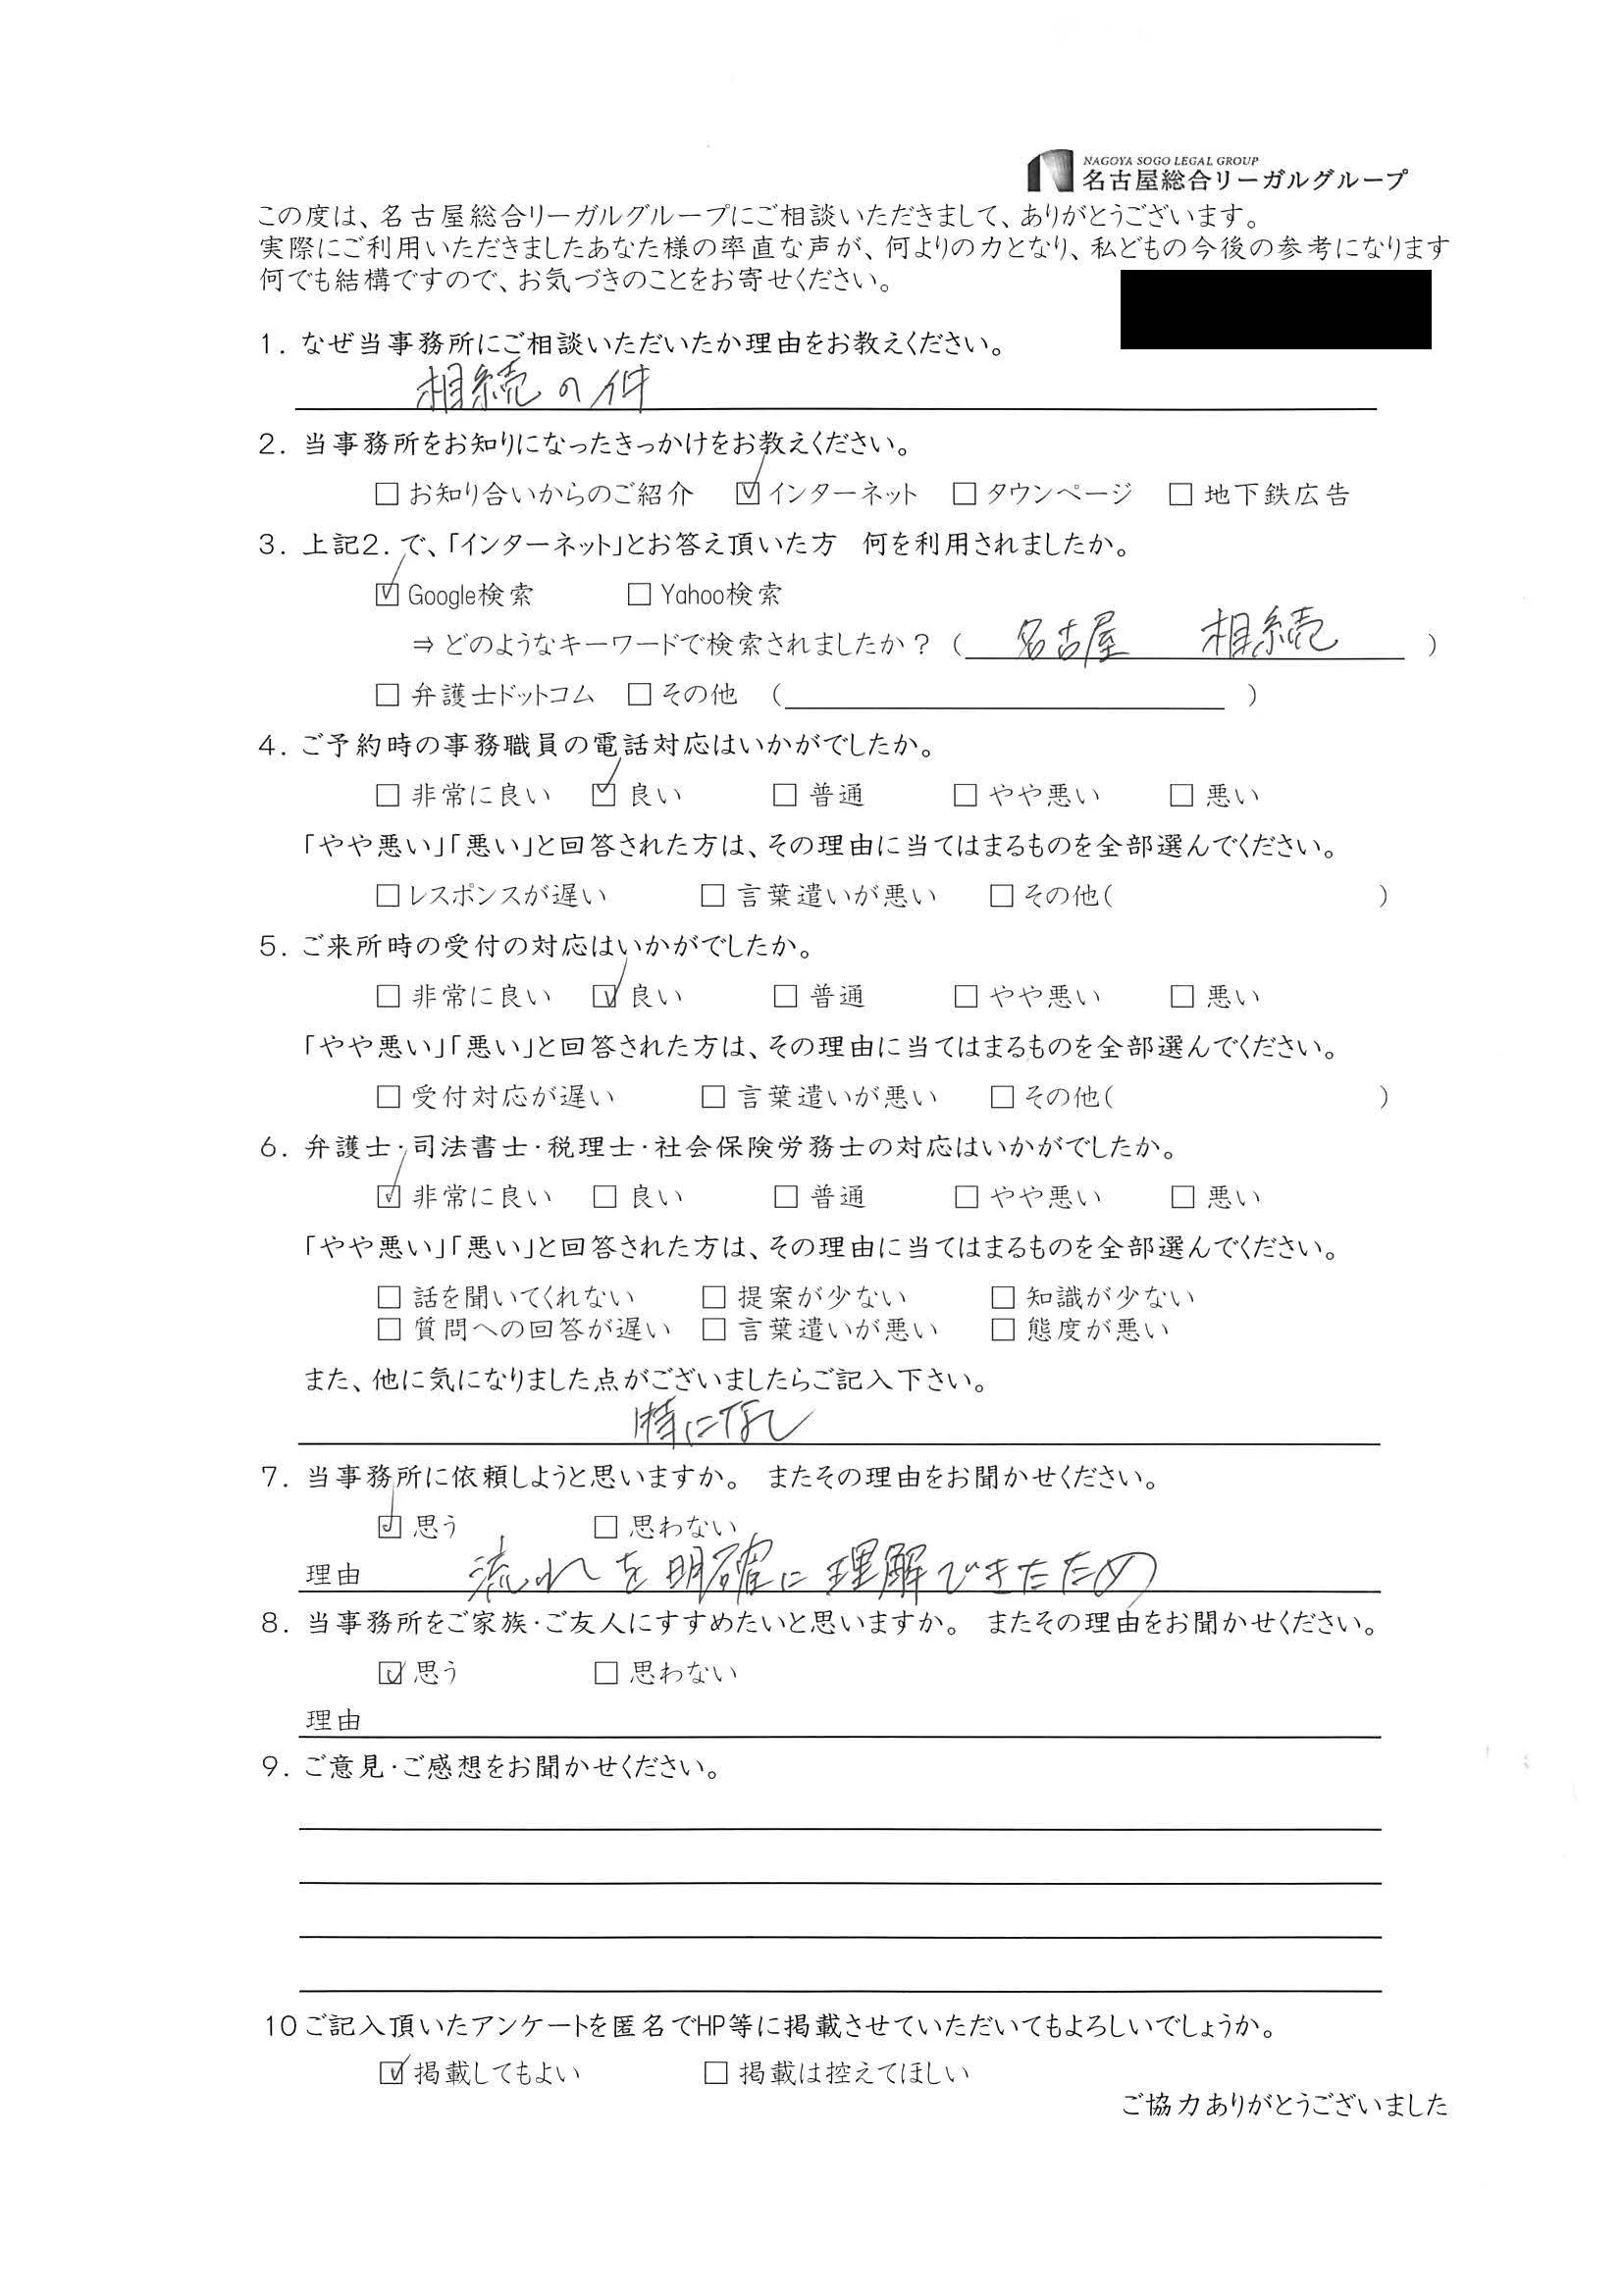 NAGOYA SOGO LEGAL GROUP
名古屋総合リーガルグループ
この度は、名古屋総合リーガルグループにご相談いただきまして、ありがとうございます。
実際にご利用いただきましたあなた様の率直な声が、何よりの力となり、私どもの今後の参考になります
何でも結構ですので、お気づきのことをお寄せください。
1. なぜ当事務所にご相談いただいたか理由をお教えください。
相続の件
2. 当事務所をお知りになったきっかけをお教えください。
□ お知り合いからのご紹介 ☑ インターネット □ タウンページ □ 地下鉄広告
3. 上記2. で、「インターネット」とお答え頂いた方 何を利用されましたか。
☑ Google検索 □ Yahoo検索
⇒ どのようなキーワードで検索されましたか？ ( 名古屋 相続 )
□ 弁護士ドットコム □ その他 ( )
4. ご予約時の事務職員の電話対応はいかがでしたか。
□ 非常に良い ☑ 良い □ 普通 □ やや悪い □ 悪い
「やや悪い」「悪い」と回答された方は、その理由に当てはまるものを全部選んでください。
□ レスポンスが遅い □ 言葉遣いが悪い □ その他( )
5. ご来所時の受付の対応はいかがでしたか。
□ 非常に良い ☑ 良い □ 普通 □ やや悪い □ 悪い
「やや悪い」「悪い」と回答された方は、その理由に当てはまるものを全部選んでください。
□ 受付対応が遅い □ 言葉遣いが悪い □ その他( )
6. 弁護士・司法書士・税理士・社会保険労務士の対応はいかがでしたか。
☑ 非常に良い □ 良い □ 普通 □ やや悪い □ 悪い
「やや悪い」「悪い」と回答された方は、その理由に当てはまるものを全部選んでください。
□ 話を聞いてくれない □ 提案が少ない □ 知識が少ない
□ 質問への回答が遅い □ 言葉遣いが悪い □ 態度が悪い
また、他に気になりました点がございましたらご記入下さい。
特になし
7. 当事務所に依頼しようと思いますか。 またその理由をお聞かせください。
☑ 思う □ 思わない
理由 流れを明確に理解できたため
8. 当事務所をご家族・ご友人にすすめたいと思いますか。 またその理由をお聞かせください。
☑ 思う □ 思わない
理由
9. ご意見・ご感想をお聞かせください。
10 ご記入頂いたアンケートを匿名でHP等に掲載させていただいてもよろしいでしょうか。
☑ 掲載してもよい □ 掲載は控えてほしい
ご協力ありがとうございました